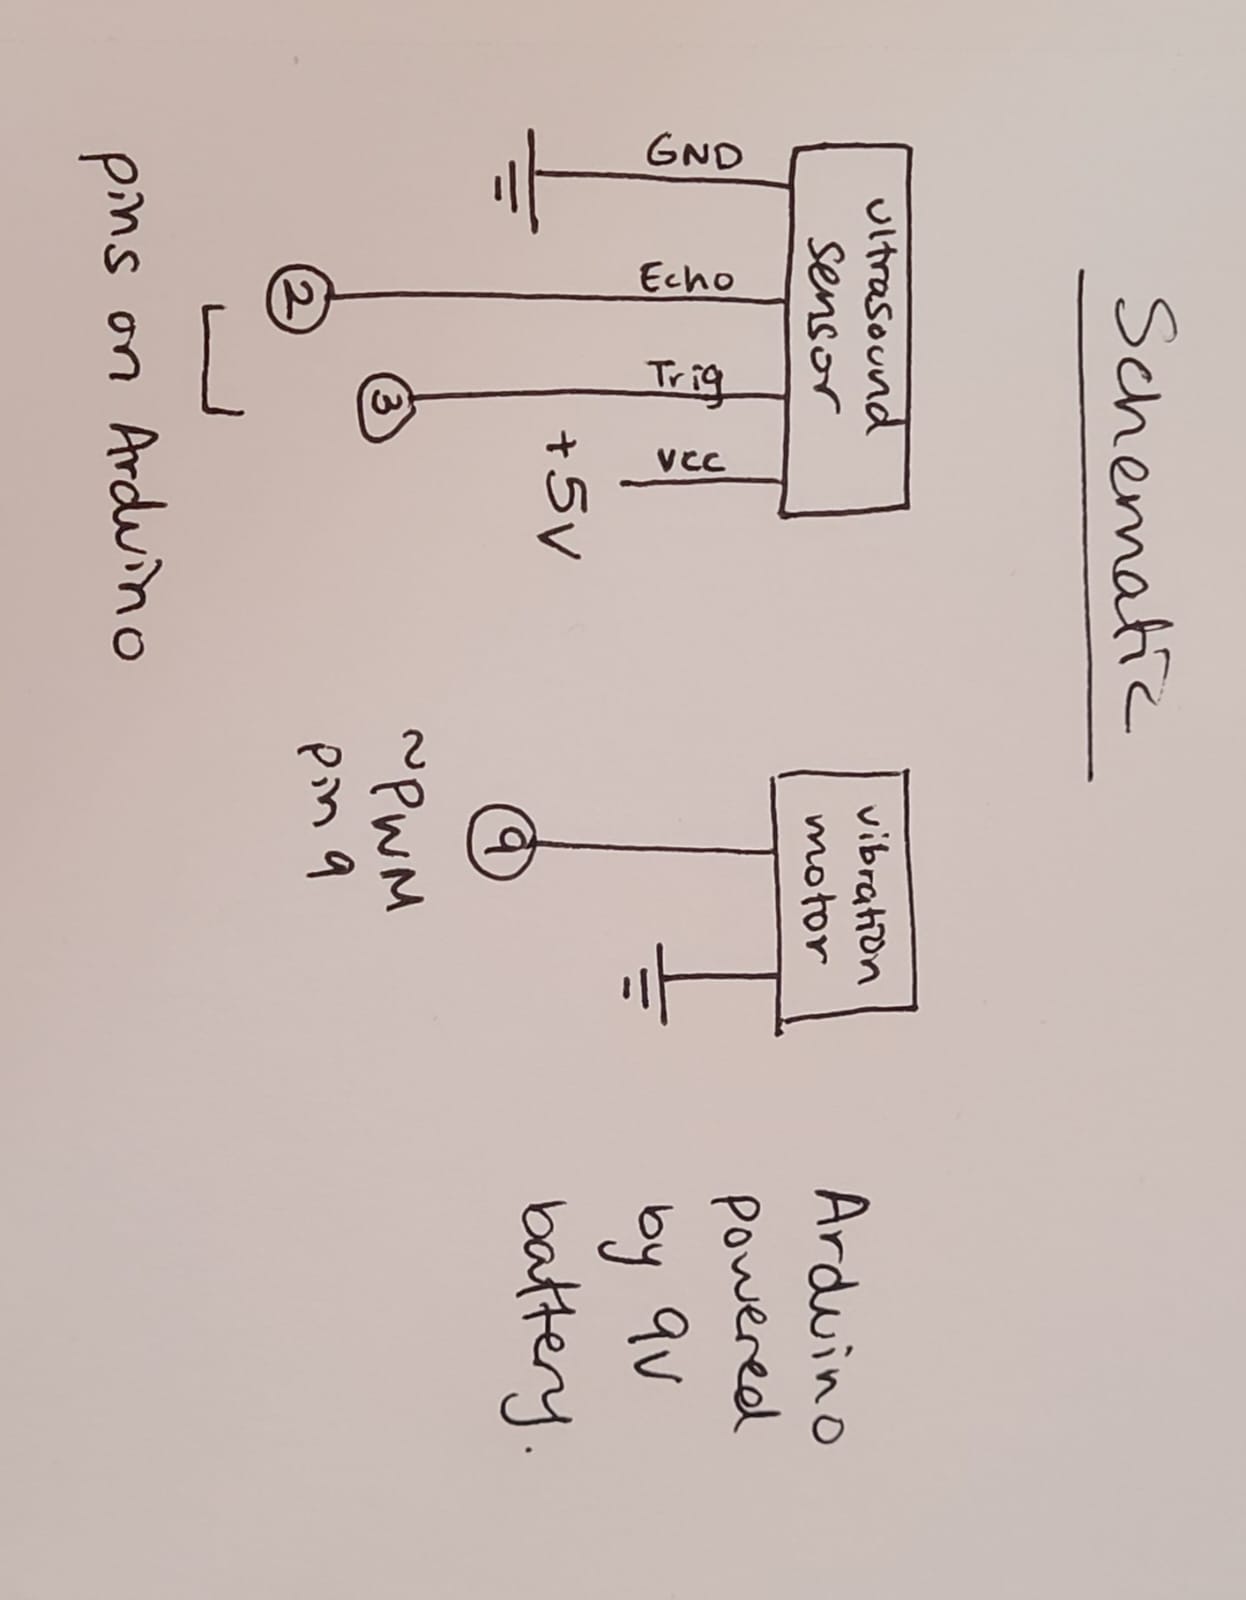 Schematic
ultrasound
sensor
GND
Echo
Trig
Vcc
+5V
2
3
pins on Arduino
vibration
motor
9
~PWM
pin 9
Arduino
powered
by 9V
battery.